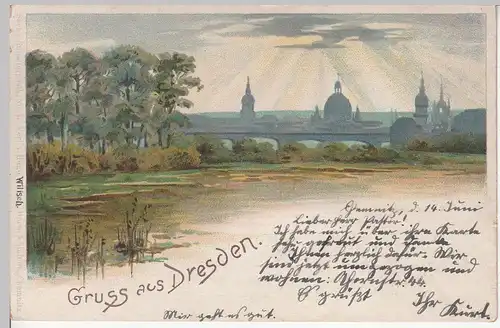 Chemnitz, d. 14. Juni
Lieber Herr Pastor!
Ich habe mich über ihre Karte
sehr gefreut und danke
Ihnen herzlich dafür. Wir
sind jetzt umgezogen und
wohnen: Ahornstr. 44.
Es grüßt
Ihr Kurt.
Gruss aus Dresden.
Mir geht es gut.